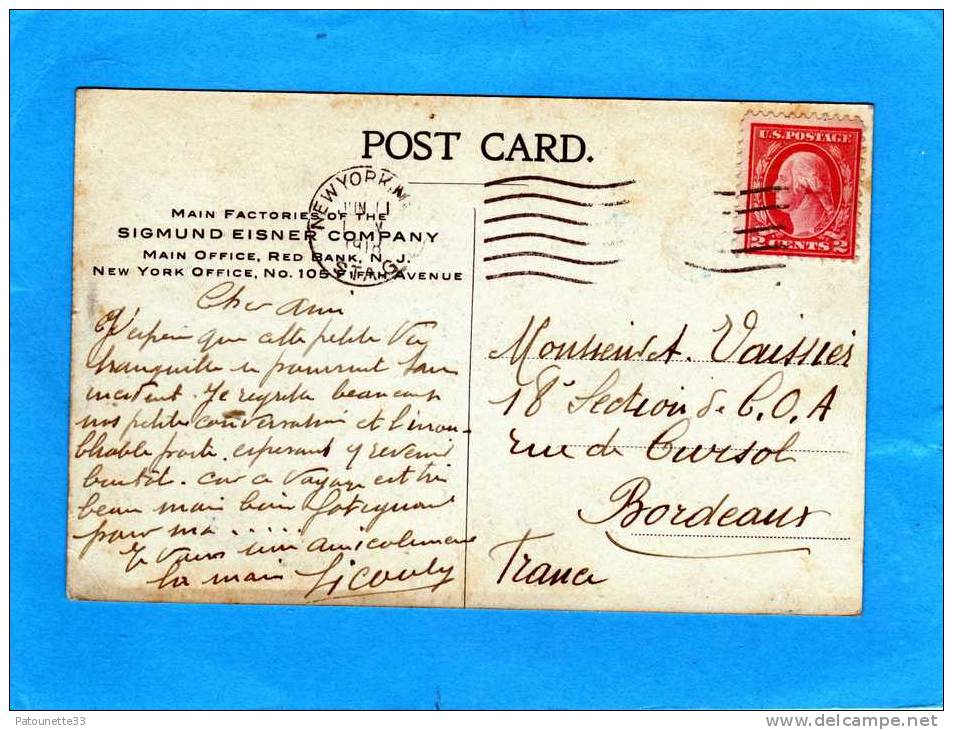 POST CARD.
U.S. POSTAGE
2 CENTS 2
NEW YORK, N.
JUN 11
MAIN FACTORIES OF THE
SIGMUND EISNER COMPANY
MAIN OFFICE, RED BANK, N. J.
NEW YORK OFFICE, NO. 105 FIFTH AVENUE
Cher ami
J'espère que cette petite
tranquille se poursuivent sans
incident. Je regrette beaucoup
nos petites conversation et l'inou-
bliable poste. esperant y revenir
bientôt. car ce Voyage est très
beau mais bien fatiguant
pour ma .....
Je vous amicalement
la main
Monsieur A. Vaissier
18e Section de C.O.A
rue de Cursol
Bordeaux
France
Patounette33
delcampe.net